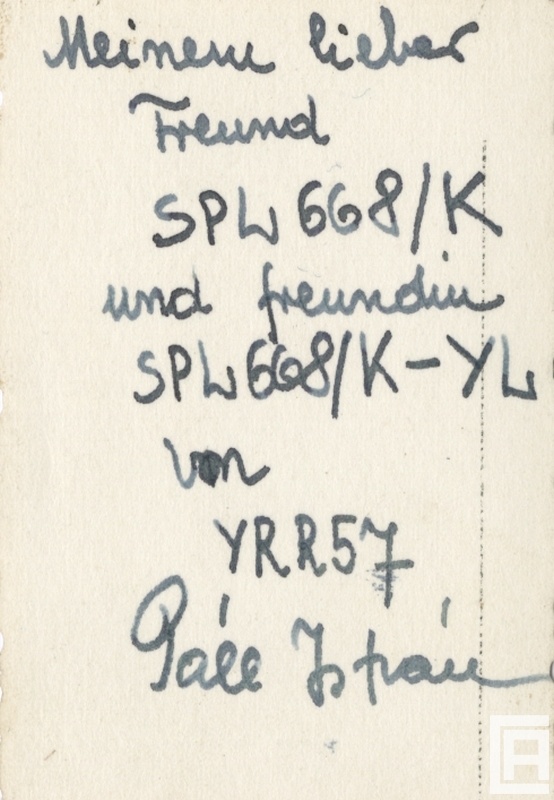 Meinem lieber
Freund
SPL 668/K
und freundin
SPL668/K-YL
von
YRR57
Páll István
CA